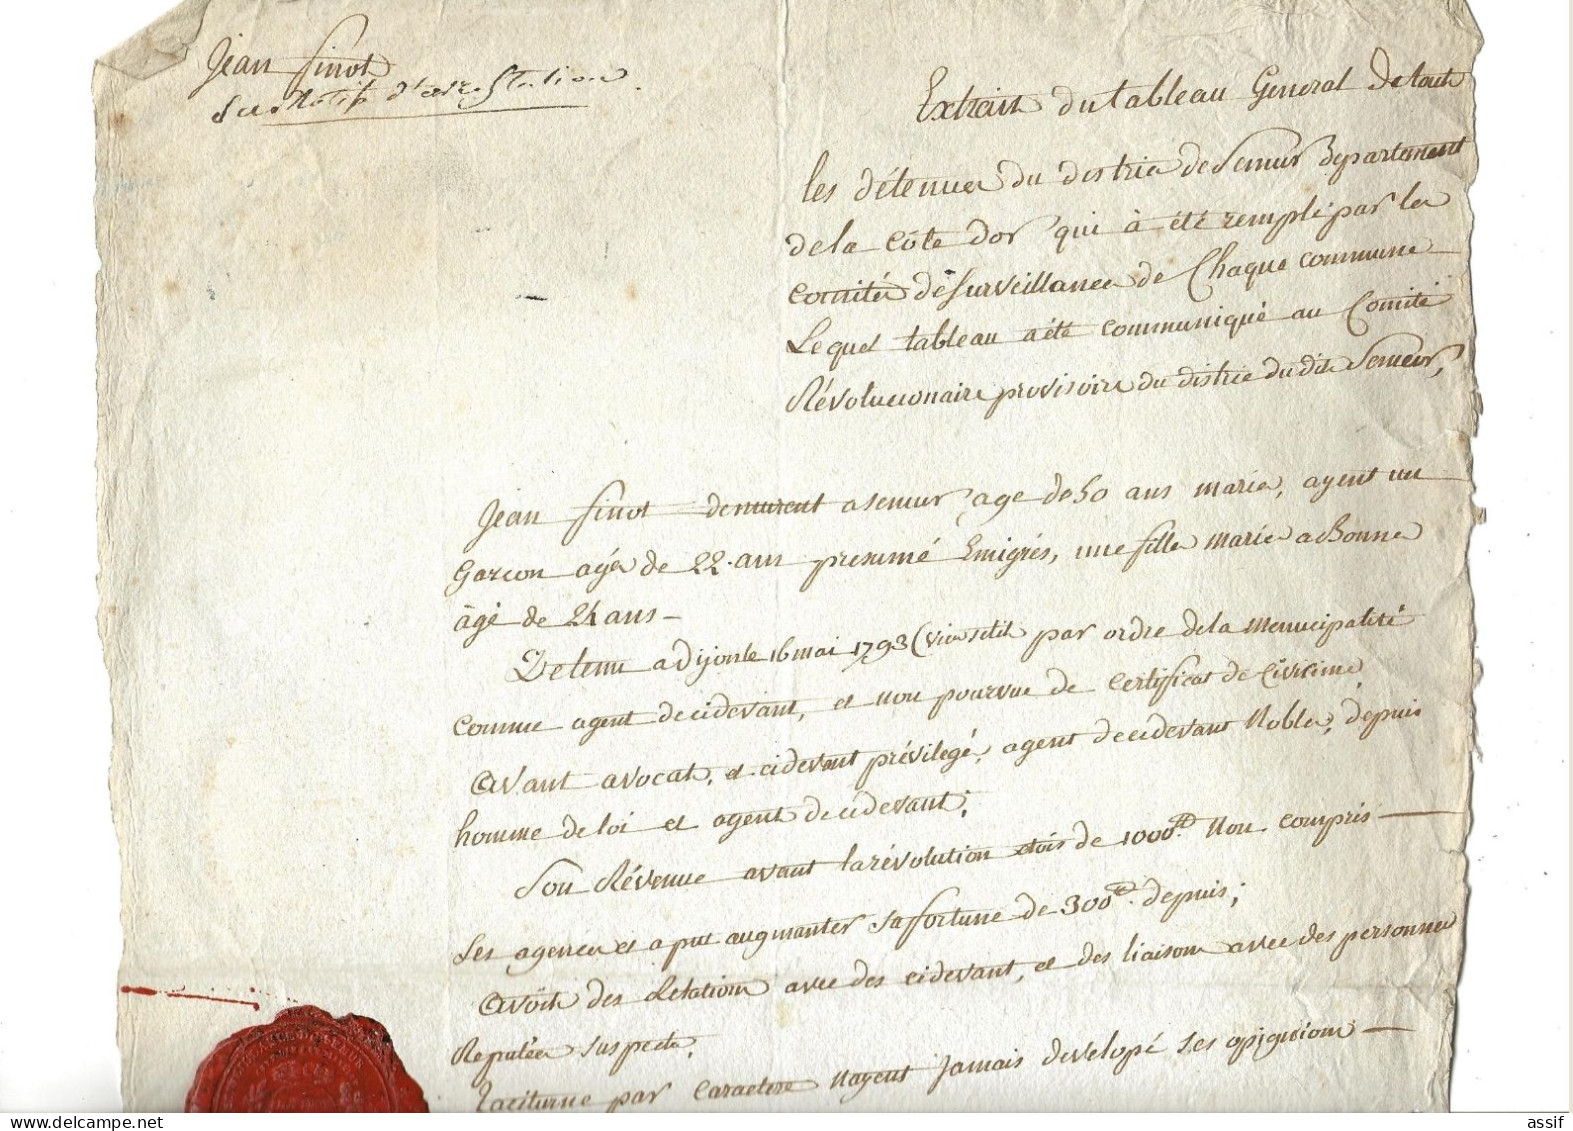 Jean finot
Sus Motif d'arrestation.
Extrait du tableau General De tout
les détenues du district de Semur Departement
de la côte dor qui à été remplé par les
comités de surveillance de Chaque commune
Lequel tableau a été communiqué au Comité
Révolucionaire provisoire du district du dit Semeur,
Jean finot demeurent a semur age de 50 ans marié, ayent un
Garçon agé de 22 ans presumé Emigrés, une fille marié a Bonne
âgé de 24 ans —
Detenu a Dijon le 16 mai 1793 (vieu stil par ordre de la Menucipalité
comme agent de cidevant, et non pourvue de certificat de Civisime
Avant avocat, et cidevant prévilegé, agent de cidevant Noble, depuis
homme de loi et agent de cidevant;
Son Révenue avant la révolution etois de 1000tt. Non compris —
Ses agences et a put augmanter sa fortune de 300tt. depuis;
Avoit des Relations avec des cidevant, et des liaisons avec des personnes
Reputées suspecte,
Taciturne par caractere Nayent Jamais developé ses opignions —
assif